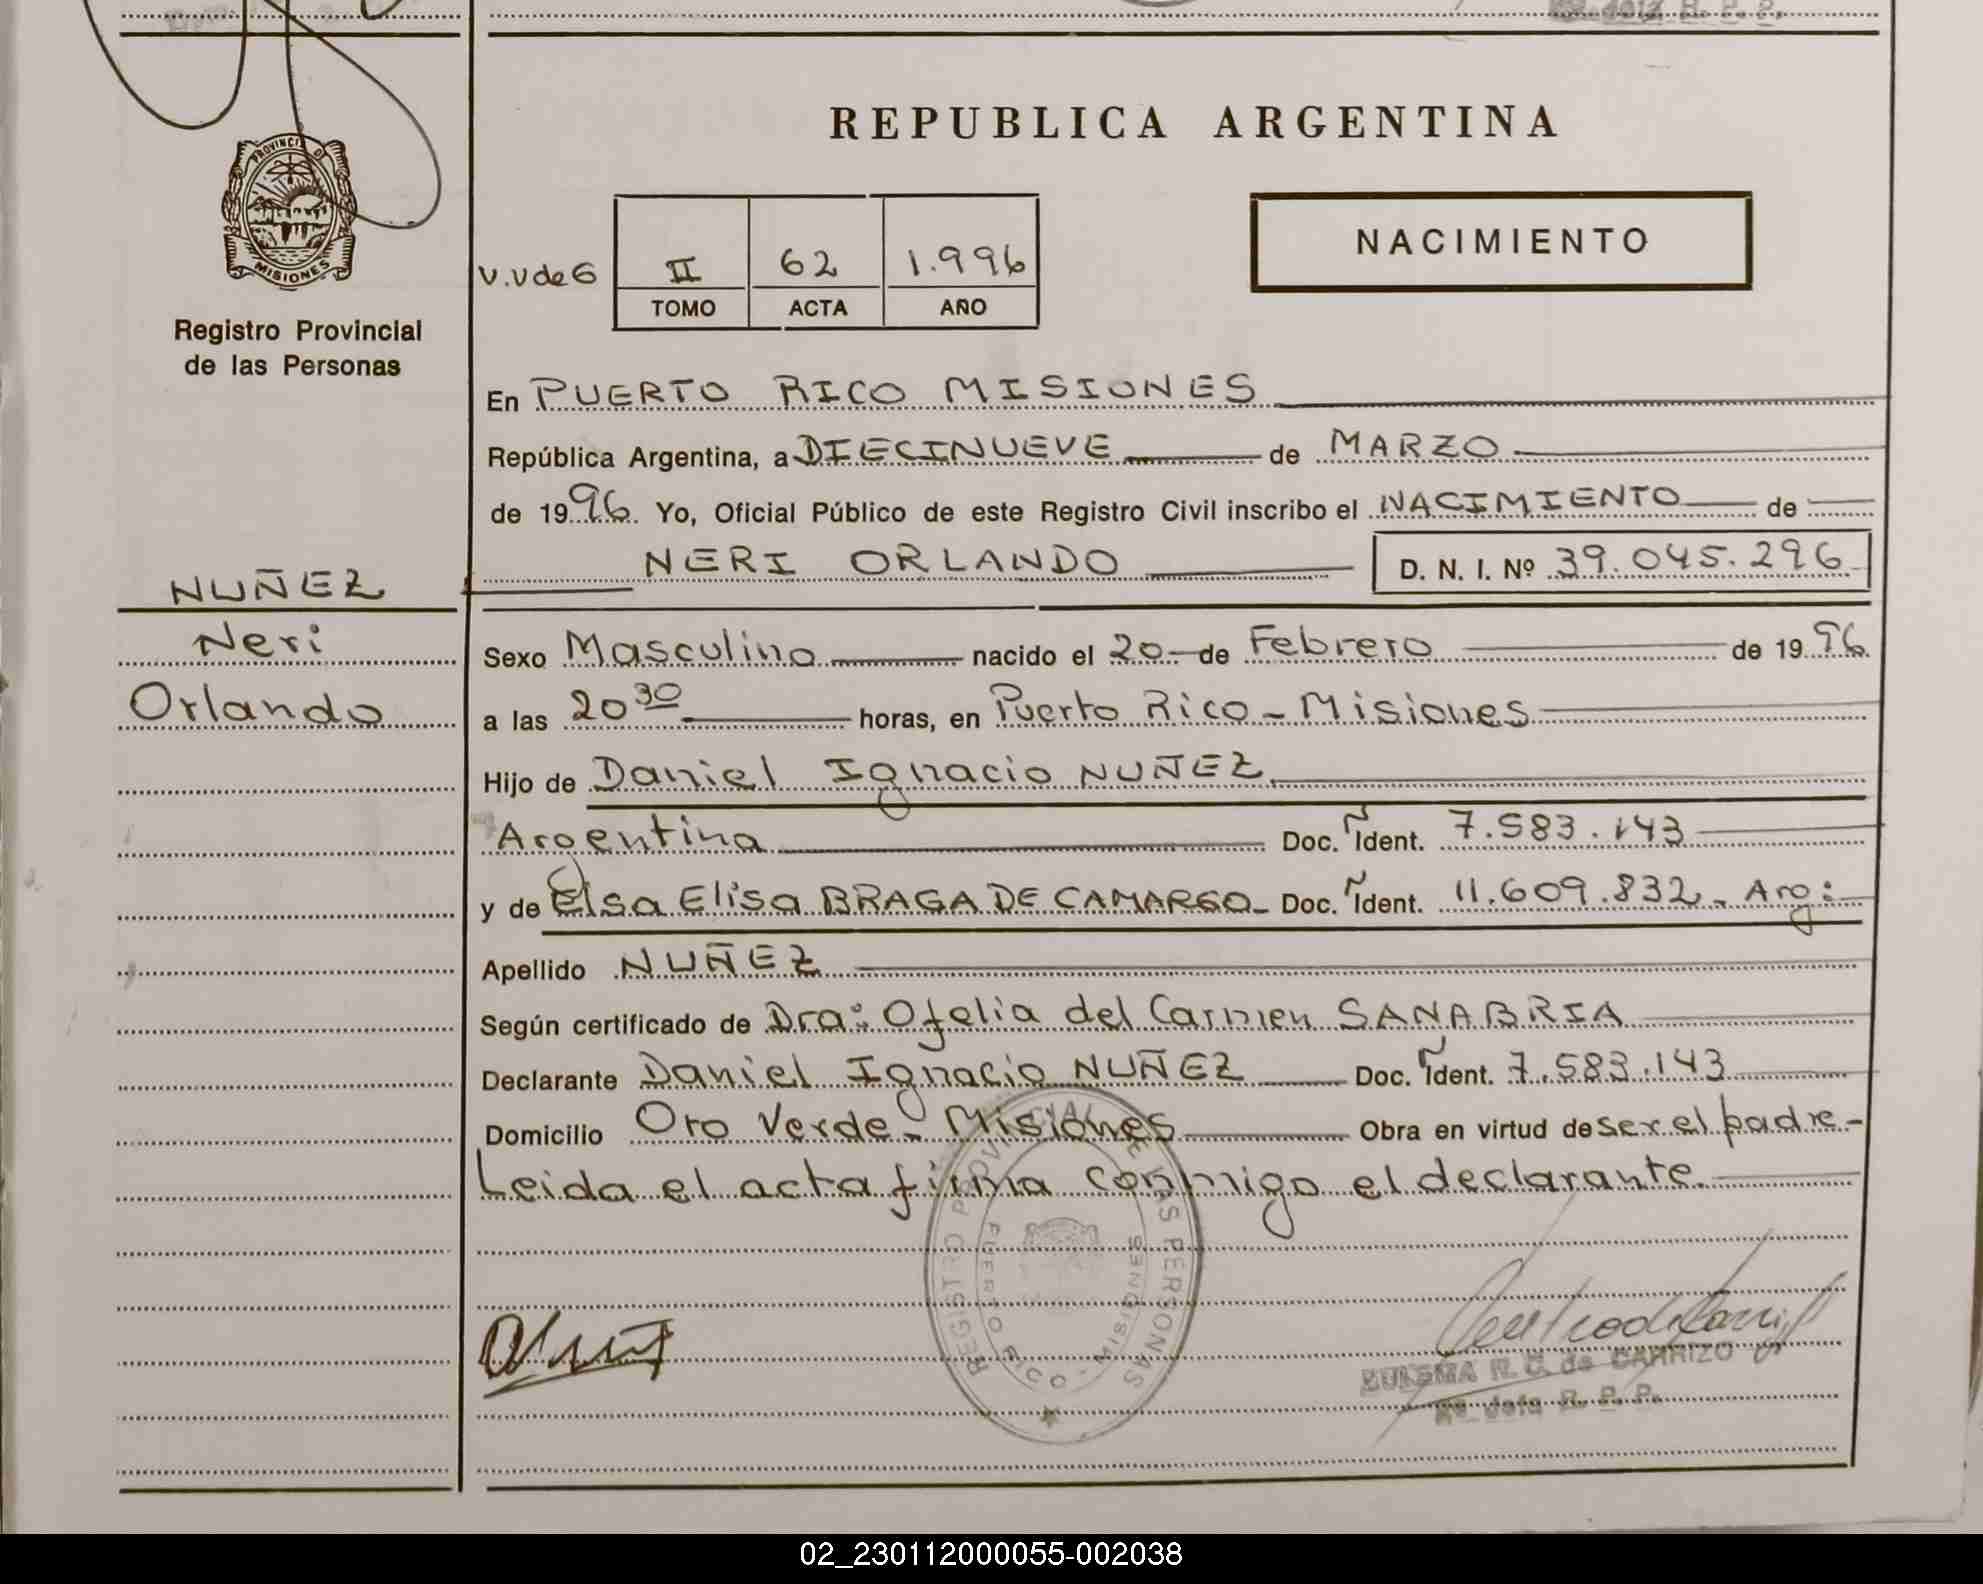 REPUBLICA ARGENTINA
PROVINCIA D
MISIONES
Registro Provincial
de las Personas
V.V de 6
II 62 1.996
TOMO ACTA AÑO
NACIMIENTO
En PUERTO RICO MISIONES
República Argentina, a DIECINUEVE de MARZO
de 1996. Yo, Oficial Público de este Registro Civil inscribo el NACIMIENTO de
NERI ORLANDO D. N. I. Nº 39.045.296
NUÑEZ
Neri
Orlando
Sexo Masculino nacido el 20 de Febrero de 1996.
a las 20 30 horas, en Puerto Rico - Misiones
Hijo de Daniel Ignacio NUÑEZ
Argentina Doc. Ident. 7.583.143
y de Elsa Elisa BRAGA DE CAMARGO - Doc. Ident. 11.609.832 - Arg:
Apellido NUÑEZ
Según certificado de Dra: Ofelia del Carmen SANABRIA
Declarante Daniel Ignacio NUÑEZ Doc. Ident. 7.583.143
Domicilio Oro Verde - Misiones Obra en virtud de ser el padre -
Leida el acta firma conmigo el declarante.
REGISTRO PROVINCIAL DE LAS PERSONAS
PUERTO RICO - MISIONES
ZULEMA R. C. de CARRIZO
R. P. P.
02_230112000055-002038